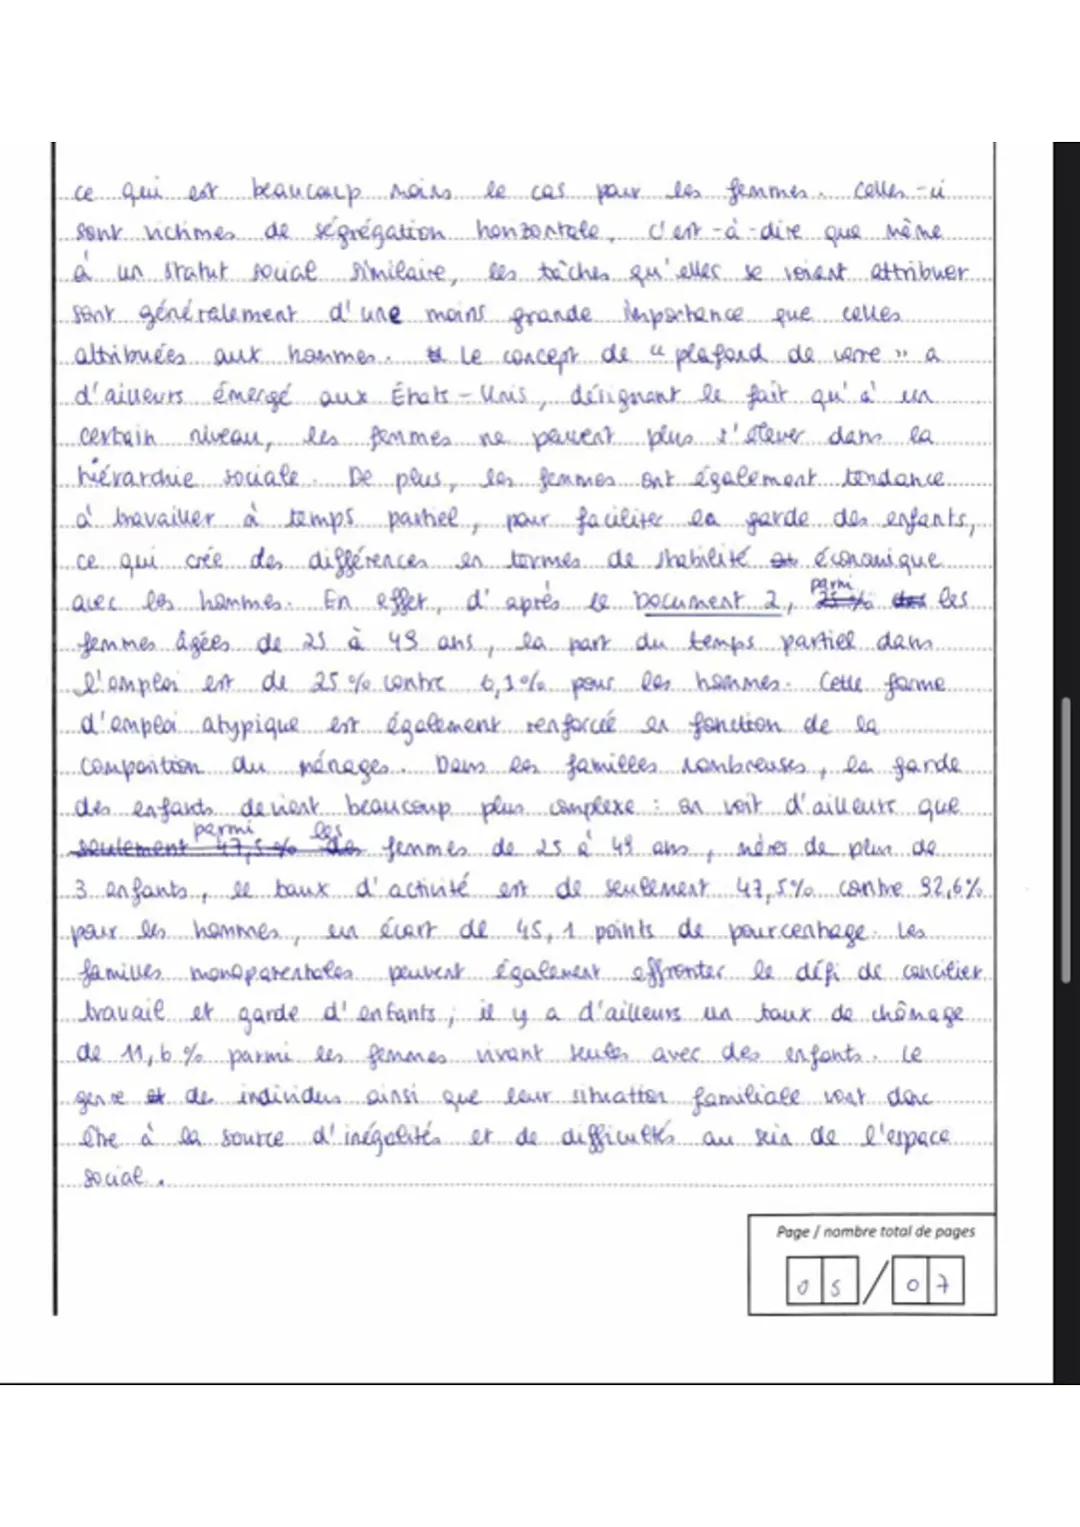 ce qui est beaucoup moins le cas pour les femmes. Celles-ci
sont victimes de ségrégation horizontale, c'est-à-dire que même
à un statut social similaire, les tâches qu'elles se voient attribuer
sont généralement d'une moins grande importance que celles
attribuées aux hommes. Le concept de "plafond de verre" a
d'ailleurs émergé aux États-Unis, désignant le fait qu'à un
certain niveau, les femmes ne peuvent plus s'élever dans la
hiérarchie sociale. De plus, les femmes ont également tendance
à travailler à temps partiel, pour faciliter la garde des enfants,
ce qui crée des différences en termes de stabilité économique
avec les hommes. En effet, d'après le Document 2, parmi les
femmes âgées de 25 à 49 ans, la part du temps partiel dans
l'emploi est de 25 % contre 6,1% pour les hommes. Cette forme
d'emploi atypique est également renforcée en fonction de la
composition du ménages. Dans les familles nombreuses, la garde
des enfants devient beaucoup plus complexe : on voit d'ailleurs que
parmi les femmes de 25 à 49 ans, mères de plus de
3 enfants, le taux d'activité est de seulement 47,5% contre 92,6%
pour les hommes, un écart de 45,1 points de pourcentage. Les
familles monoparentales peuvent également affronter le défi de concilier
travail et garde d'enfants ; il y a d'ailleurs un taux de chômage
de 11,6 % parmi les femmes vivant seules avec des enfants. Le
genre des individus ainsi que leur situation familiale vont donc
être à la source d'inégalités et de difficultés au sein de l'espace
social.
Page / nombre total de pages
05 / 07